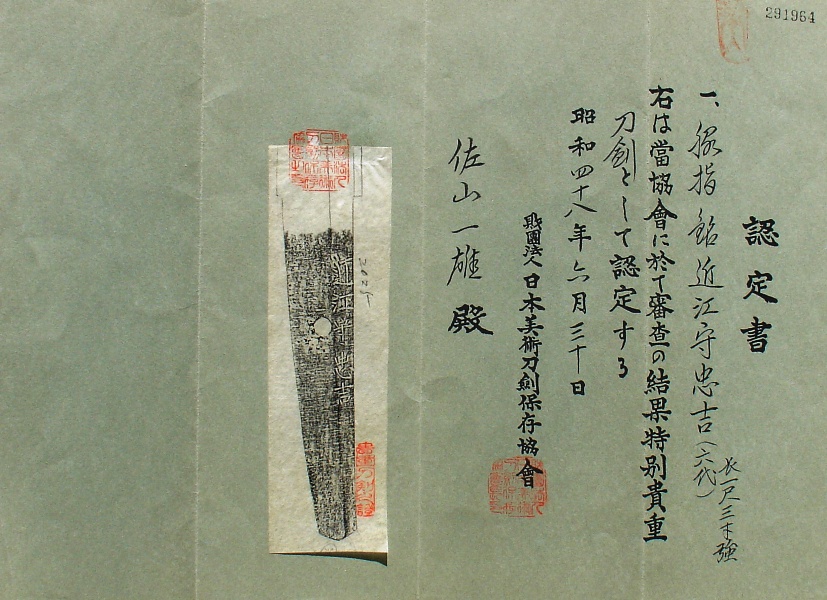 291964
認定書
一、脇指 銘 近江守忠吉（六代）
長一尺三寸強
右は當協會に於て審査の結果特別貴重
刀劍として認定する
昭和四十八年六月三十日
財團法人日本美術刀劍保存協會
佐山一雄殿
近江守忠吉